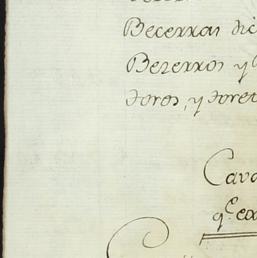 Becerras dic
Bezerros y
toros, y toret
Cava
q.e ex